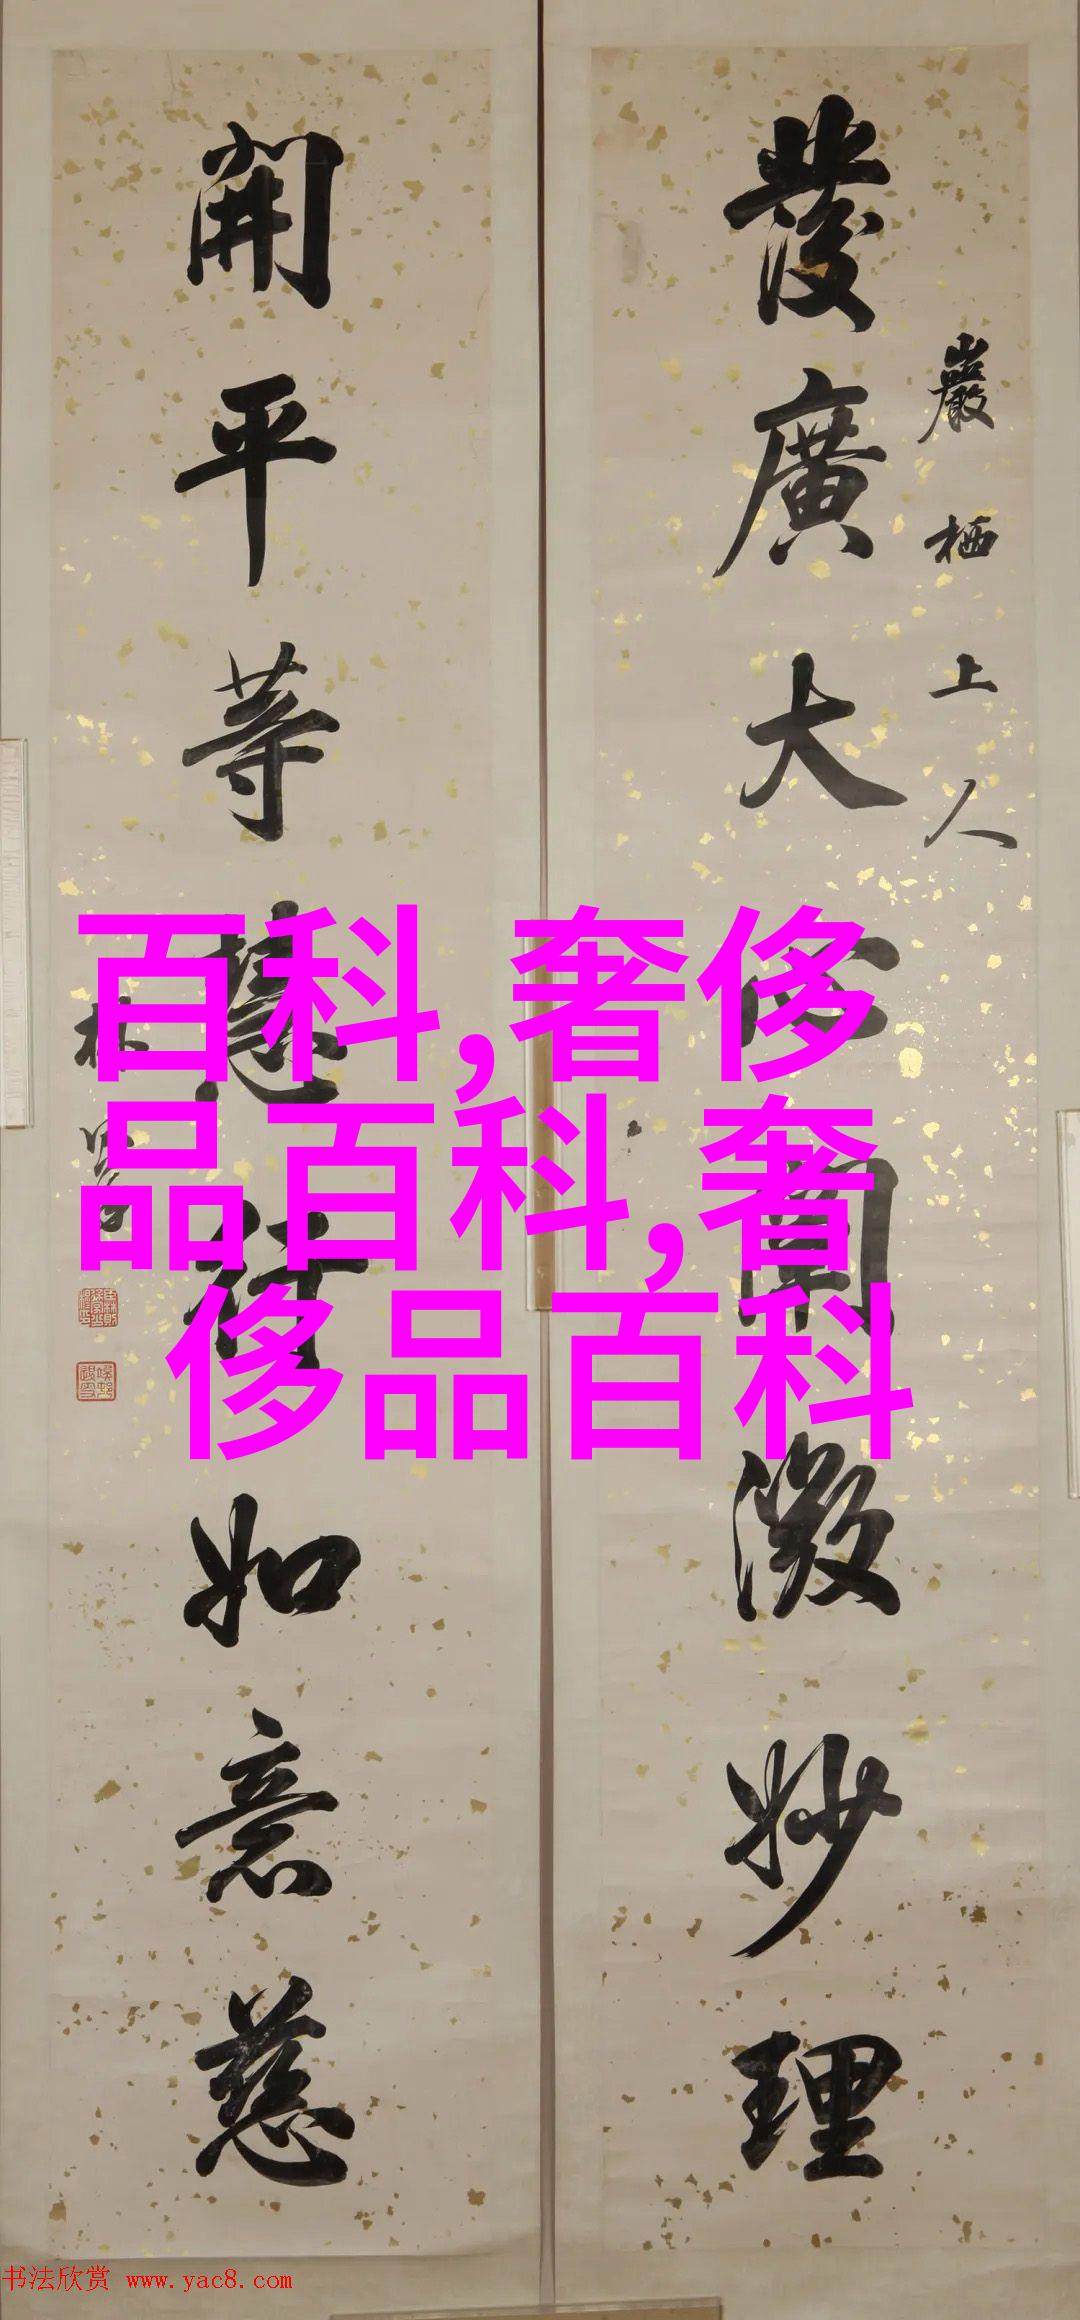 發廣大心闡微妙理
巖栖上人
開平等慧行如意慈
林
百科,奢侈
品百科,奢
侈品百科
书法欣赏 www.yac8.com